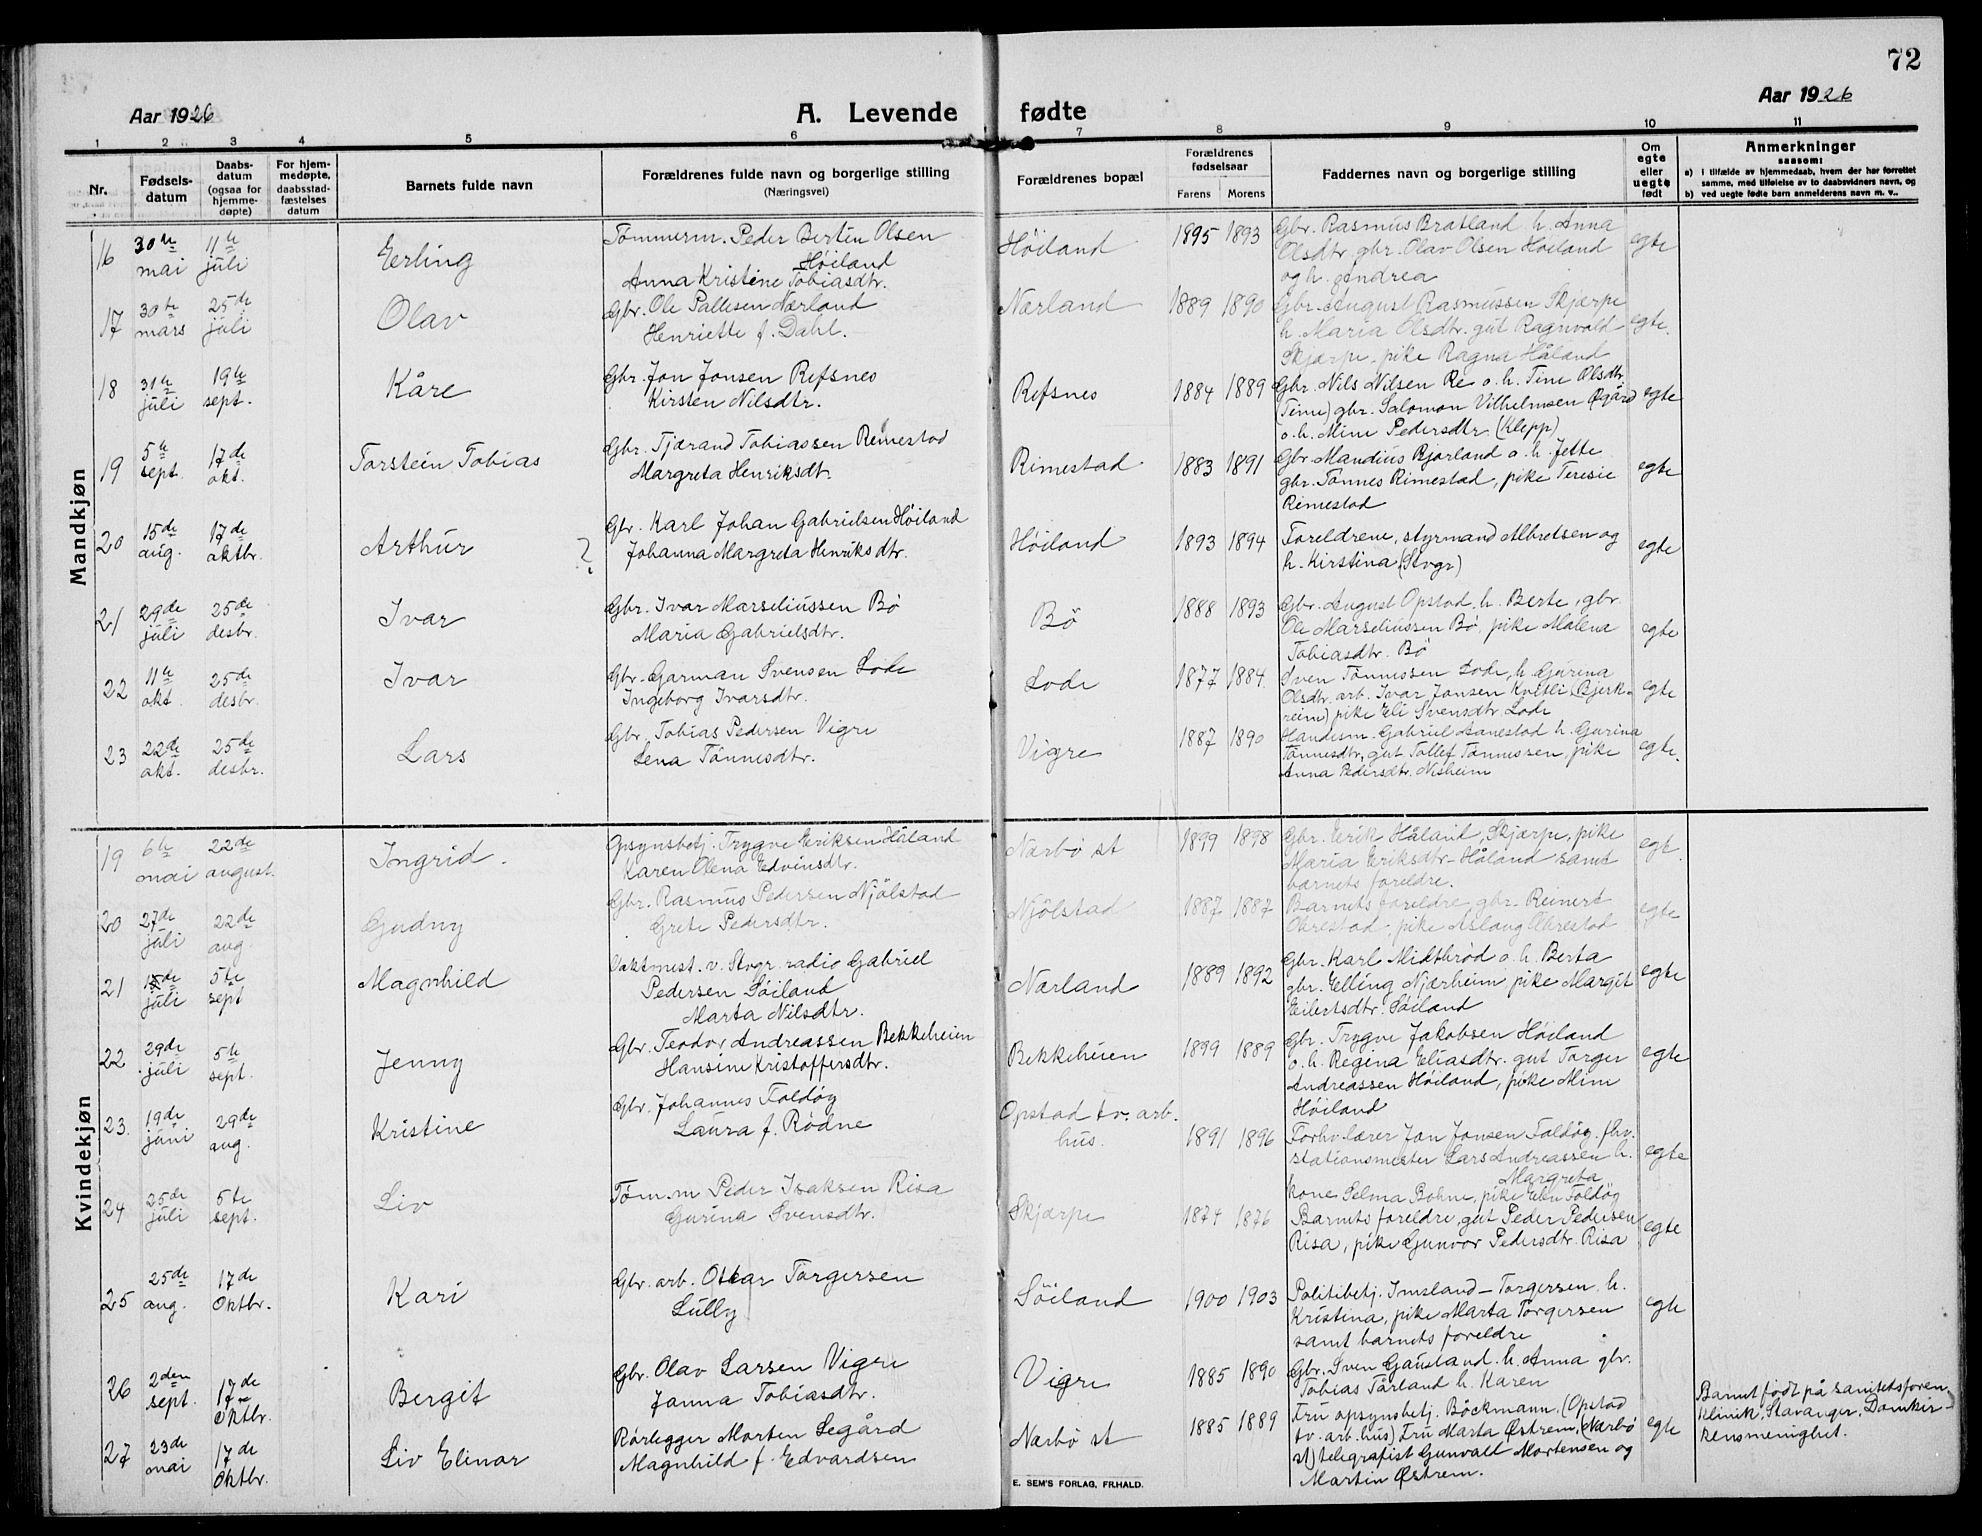 72
Aar 1926
A. Levende fødte
Aar 1926
1 2 3 4 5 6 7 8 9 10 11
Nr.
Fødsels-
datum
Daabs-
datum
(ogsaa for
hjemme-
døpte)
For hjem-
medøpte,
daabsstad-
fæstelses
datum
Barnets fulde navn
Forældrenes fulde navn og borgerlige stilling
(Næringsvei)
Forældrenes bopæl
Forældrenes
fødselsaar
Farens Morens
Faddernes navn og borgerlige stilling
Om
egte
eller
uegte
født
Anmerkninger
saasom:
a) i tilfælde av hjemmedaab, hvem der har forrettet
samme, med tilføielse av to daabsvidners navn, og
b) ved uegte fødte barn anmelderens navn m. v..
Mandkjøn
16 30te mai 11te juli Erling
Tømmerm. Peder Bertin Olsen
Høiland
Anna Kristine Tobiasdtr.
Høiland 1895 1893
Gbr. Rasmus Bratland h. Anna
Olsdtr gbr. Olav Olsen Høiland
og h. Andrea
egte
17 30te mars 25de juli Olav
Gbr. Ole Pallesen Nærland
Henriette f. Dahl.
Nærland 1889 1890
Gbr. August Rasmussen Skjærpe
h. Maria Olsdtr. gut Ragnvald
Skjærpe, pike Ragna Håland
egte.
18 31te juli 19te sept. Kåre
Gbr. Jon Jonsen Refsnes
Kirsten Nilsdtr.
Refsnes 1884 1889
Gbr. Nils Nilsen Re o. h. Tine Olsdtr
(Time) gbr. Salomon Vilhelmsen Øgård
o. h. Mine Pedersdtr (Klepp)
egte
19 5te sept. 17de okt. Torstein Tobias
Gbr. Tjærand Tobiassen Rimestad
Margreta Henriksdt.
Rimestad 1883 1891
Gbr Mandius Bjorland o. h. Jette
gbr. Tønnes Rimestad, pike Teresie
Rimestad
egte
20 15de aug. 17de oktbr. Arthur ?
Gbr. Karl Johan Gabrielsen Høiland
Johanna Margreta Henriksdtr.
Høiland 1893 1894
Foreldrene, styrmand Albretsen og
h. Kirstina (Stvgr)
egte
21 29de juli 25de desbr. Ivar
Gbr. Ivar Marseliussen Bø
Maria Gabrielsdtr.
Bø 1888 1893
Gbr. August Opstad, h. Berte, gbr.
Ole Marseliussen Bø, pike Malena
Tobiasdtr. Bø
egte
22 11te okt. 25de desbr. Ivar
Gbr. Garman Svensen Lode
Ingeborg Ivarsdtr.
Lode 1877 1884.
Sven Tønnessen Lode, h. Gurina
Olsdtr. arb. Ivar Jonsen Kvitli (Bjerk-
reim) pike Eli Svensdtr. Lode
egte
23 22de okt. 25de desbr. Lars
Gbr. Tobias Pedersen Vigre
Lena Tønnesdtr.
Vigre 1887 1890
Handelsm. Gabriel Aanestad h. Gurina
Tønnesdtr, gut Tollef Tønnessen, pike
Anna Pedersdtr. Nisheim
egte.
Kvindekjøn
19 6te mai 22de august. Ingrid.
Opsynsbetj. Trygve Eriksen Håland
Karen Olena Edvinsdtr.
Nærbø st 1899 1898
Gbr. Erik Håland, Skjærpe, pike
Maria Eriksdtr. Håland samt
barnets foreldre.
egt.
20 27de juli 22de aug. Gudny
Gbr. Rasmus Pedersen Njölstad
Grete Pedersdtr.
Njölstad 1887 1887
Barnets foreldre, gbr. Reinert
Obrestad, pike Aslaug Obrestad
egte
21 juli 5te sept Magnhild
Vaktmest. v. Stvgr. radio Gabriel
Pedersen Söiland
Marta Nilsdtr.
Nærland 1889 1892
Gbr. Karl Midtbrød o. h. Berta
gbr. Elling Njærheim pike Margit
Eilertsdtr. Söiland
egte
22 29de juli 5te sept. Jenny
Gbr. Teodor Andreassen Bekkeheien
Hansine Kristoffersdtr.
Bekkeheien 1899 1889
Gbr. Trygve Jakobsen Høiland
o. h. Regina Eliasdtr. gut Torger
Andreassen Høiland, pike Mine
Høiland
egte
23. 19de juni 29de aug. Kristine
Gbr. Johannes Foldøy
Laura f. Rødne
Opstad tv. arb.
hus. 1891 1896
Forhv. lærer Jon Jonsen Foldøy. fhv.
stationsmester Lars Andreassen h.
Margreta
kone Selma Bohne, pike Elen Foldøy
egte
24 25de juli 5te sept. Liv
Tøm.m Peder Isaksen Risa
Gurina Svensdtr.
Skjærpe 1874 1876
Barnets foreldre, gut Peder Pedersen
Risa, pike Gunvor Pedersdtr. Risa
egte
25 25de aug. 17de Oktbr. Kari
Gbr. arb. Oskar Torgersen
Lully
Söiland 1900 1903
Politibetj. Imsland-Torgersen h.
Kristina, pike Marta Torgersen
samt barnets foreldre
egte
26 2den sept. 17de Oktbr. Bergit
Gbr. Olav Larsen Vigre
Janna Tobiasdtr.
Vigre 1885 1890
Gbr. Sven Gausland. h. Anna gbr.
Tobias Tårland h. Karen
27 23de mai 17de Oktbr. Liv Elinor
Rørlegger Morten Legård
Magnhild f. Edvardsen
Nærbø st 1885 1889
Fru opsynsbetj. Böckmann. (Opstad
tv. arb. hus) Fru Marta Østrem, (Nærbø
st) telegrafist Gunvald Mortensen og
Martin Østrem.
egte
Barnet født på sanitetsforen.
klinik, Stavanger, Domkir-
kensmenighet.
E. SEM'S FORLAG, FR.HALD.